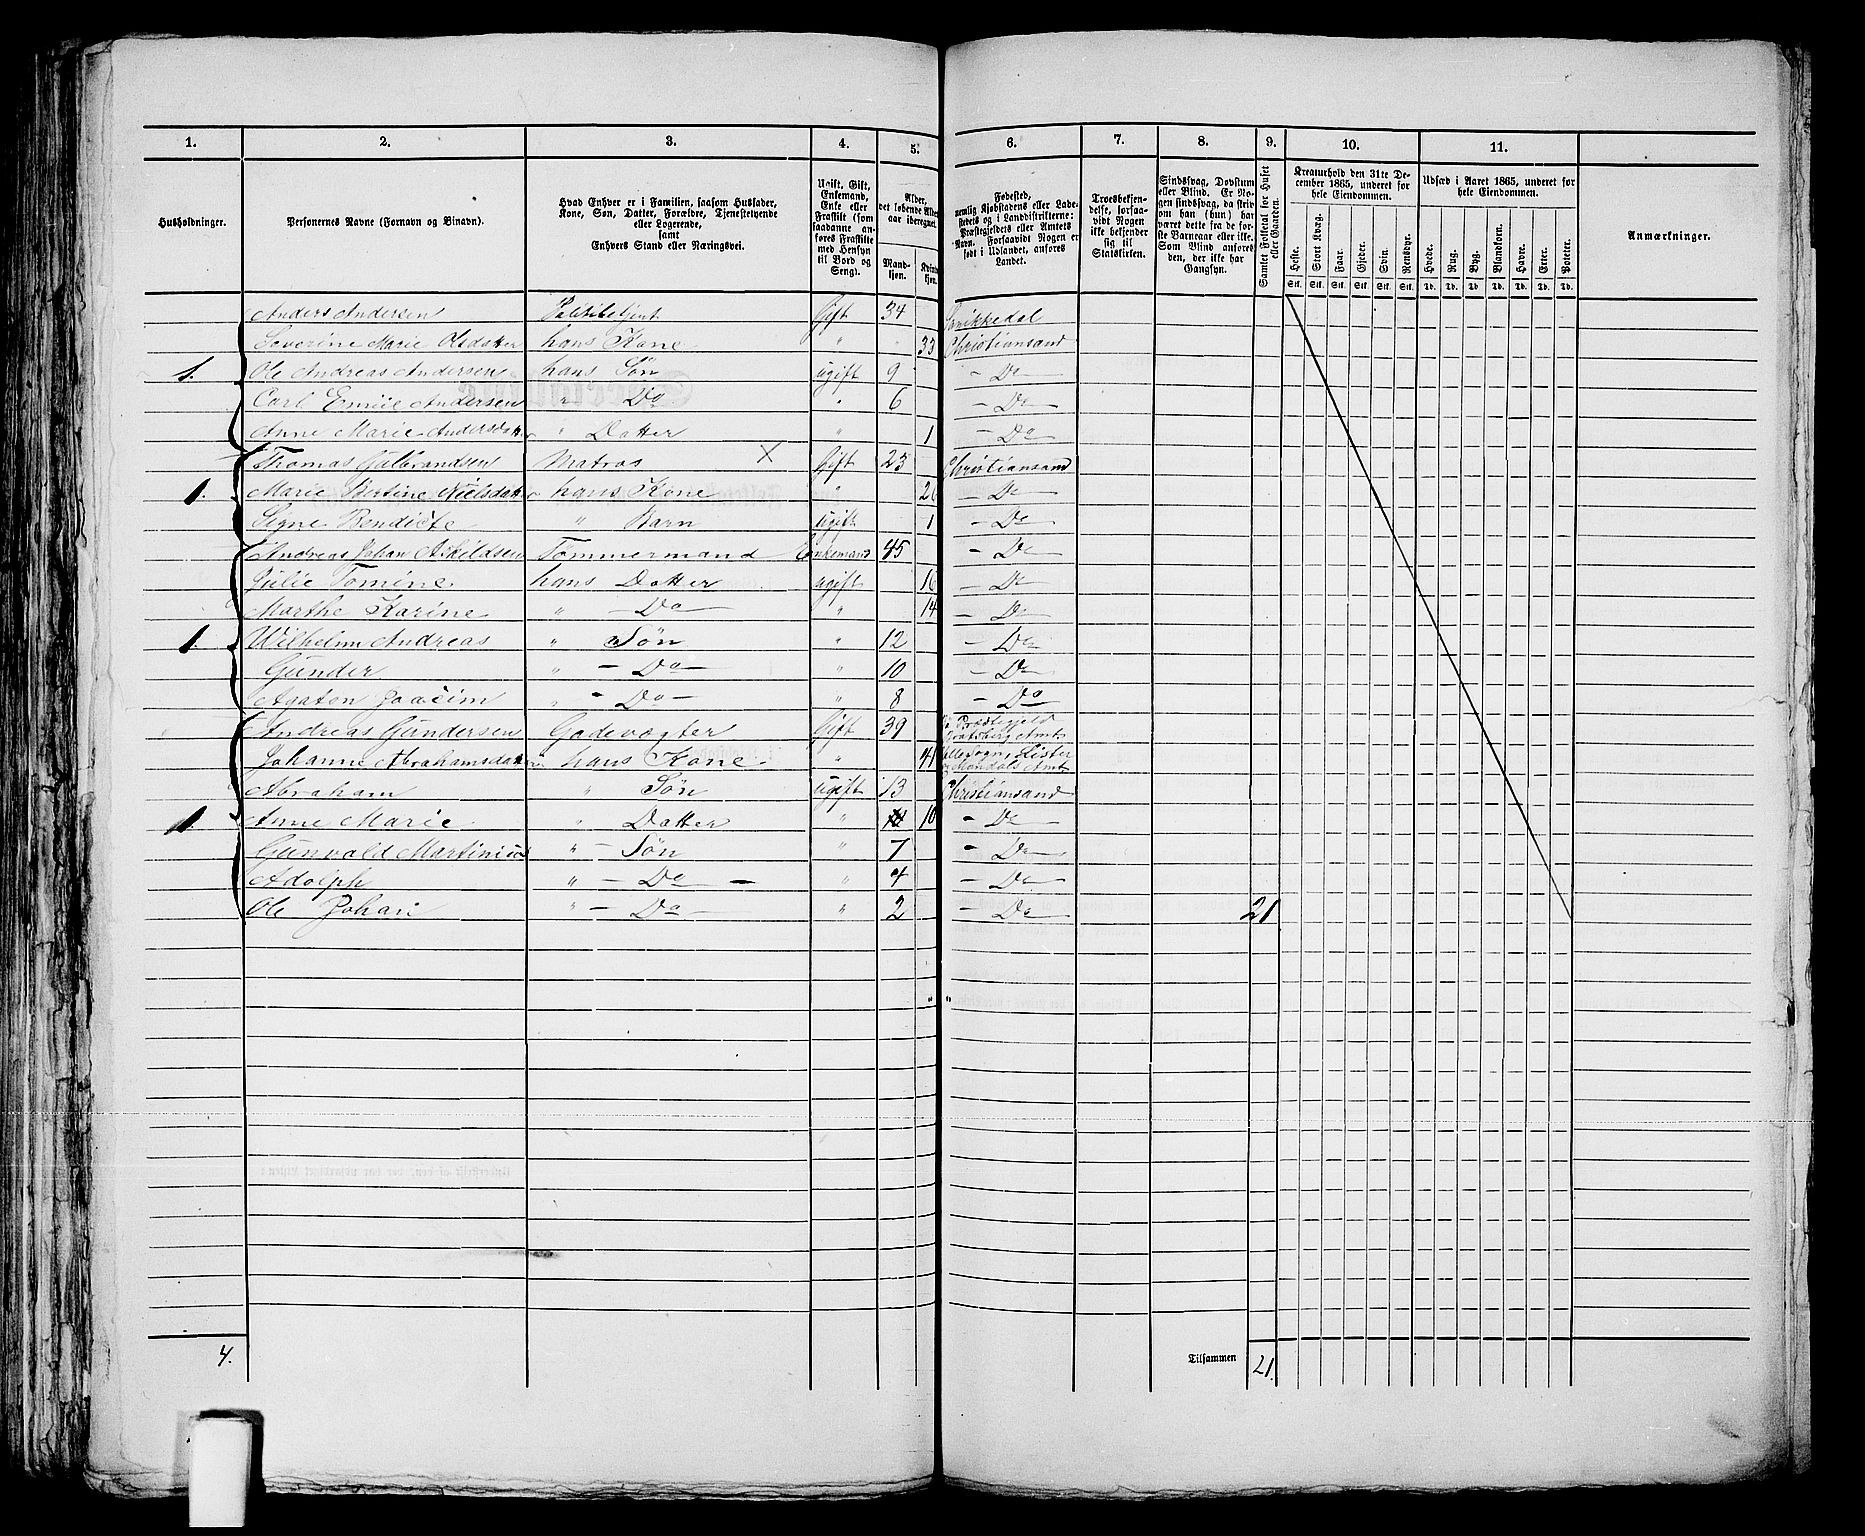 1. 2. 3. 4. 5. 6. 7. 8. 9. 10. 11.
Husholdninger.
Personernes Navne (Fornavn og Binavn).
Hvad Enhver er i Familien, saasom Husfader, Kone, Søn, Datter, Forældre, Tjenestetyende eller Logerende, samt Enhvers Stand eller Næringsvei.
Ugift, Gift, Enkemand, Enke eller Fraskilt (som saadanne anføres Fraskilte med Hensyn til Bord og Seng).
Alder, det løbende Alders aar iberegnet.
Mandkjøn. Kvindekjøn.
Fødested, nemlig Kjøbstadens eller Ladestedets og i Landdistrikterne: Præstegjeldets eller Amtets Navn. Forsaavidt Nogen er født i Udlandet, anføres Landet.
Troesbekjendelse, forsaavidt Nogen ikke bekjender sig til Statskirken.
Sindssvag, Døvstum eller Blind. Er Nogen sindssvag, da skrives om han (hun) har været dette fra de første Barneaar eller ikke. Som Blind anføres den, der ikke har Gangsyn.
Samlet Folketal for Huset eller Gaarden.
Kreaturhold den 31te December 1865, underet for hele Eiendommen.
Heste. Stort Kvæg. Faar. Gjeder. Svin. Rensdyr.
Stk. Stk. Stk. Stk. Stk. Stk.
Udsæd i Aaret 1865, underet for hele Eiendommen.
Hvede. Rug. Byg. Blandkorn. Havre. Erter. Poteter.
Td. Td. Td. Td. Td. Td. Td.
Anmærkninger.
Anders Andersen Politibetjent Gift 34
Severine Marie Olsdatter hans Kone " 33 Christiansand
1. Ole Andreas Andersen hans Søn ugift 9 – Do
Carl Emile Andersen " Do " 6 – Do
Anne Marie Andersdatter " Datter " 1 – Do
Thomas Gulbrandsen Matros X Gift 23 Christiansand
1. Marie Bertine Nielsdatter hans Kone " 26 – Do
Signe Bendicte " Barn ugift 1 – Do
Andreas Johan Askildsen Tømmermand Enkemand 45 – Do
Julie Tomine hans Datter ugift 16 – Do
Marthe Karine " – Do " 14 – Do
1. Wilhelm Andreas " Søn " 12 – Do
Gunder " – Do – " 10 – Do
Agaton Joacim " – Do – " 8 – Do
Andreas Gundersen Gadevægter Gift 39 Præstegjeld Bratsberg Amt
Johanne Abrahamsdatter hans Kone " 41 Sogn, Lister og Mandals Amt
Abraham " Søn ugift 13 Christiansand
1. Anne Marie " Datter " 10 – Do
Gunvald Martinius " – Søn " 7 – Do
Adolph " – Do – " 4 – Do
Ole Johan " – Do – " 2 – Do 21
4. Tilsammen 21.